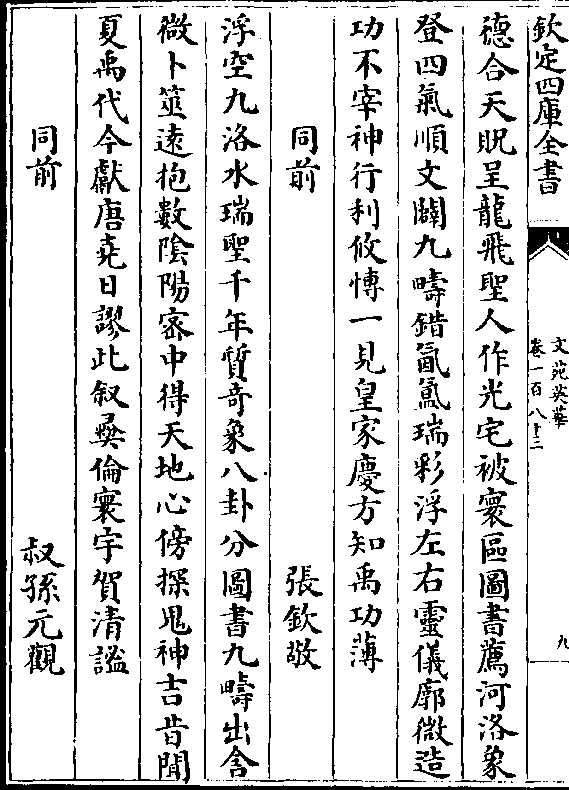 欽定四庫全書
文苑英華
卷一百八十三
九
德合天貺呈龍飛聖人作光宅被寰區圖書薦河洛象
登四氣順文闢九疇錯氤氳瑞彩浮左右靈儀廓微造
功不宰神行利攸博一見皇家慶方知禹功薄
同前 張欽敬
浮空九洛水瑞聖千年質奇象八卦分圖書九疇出含
微卜筮遠抱數陰陽宻中得天地心傍探鬼神吉昔聞
夏禹代今獻唐堯日謬此叙彞倫寰宇賀清謐
同前 叔孫元觀